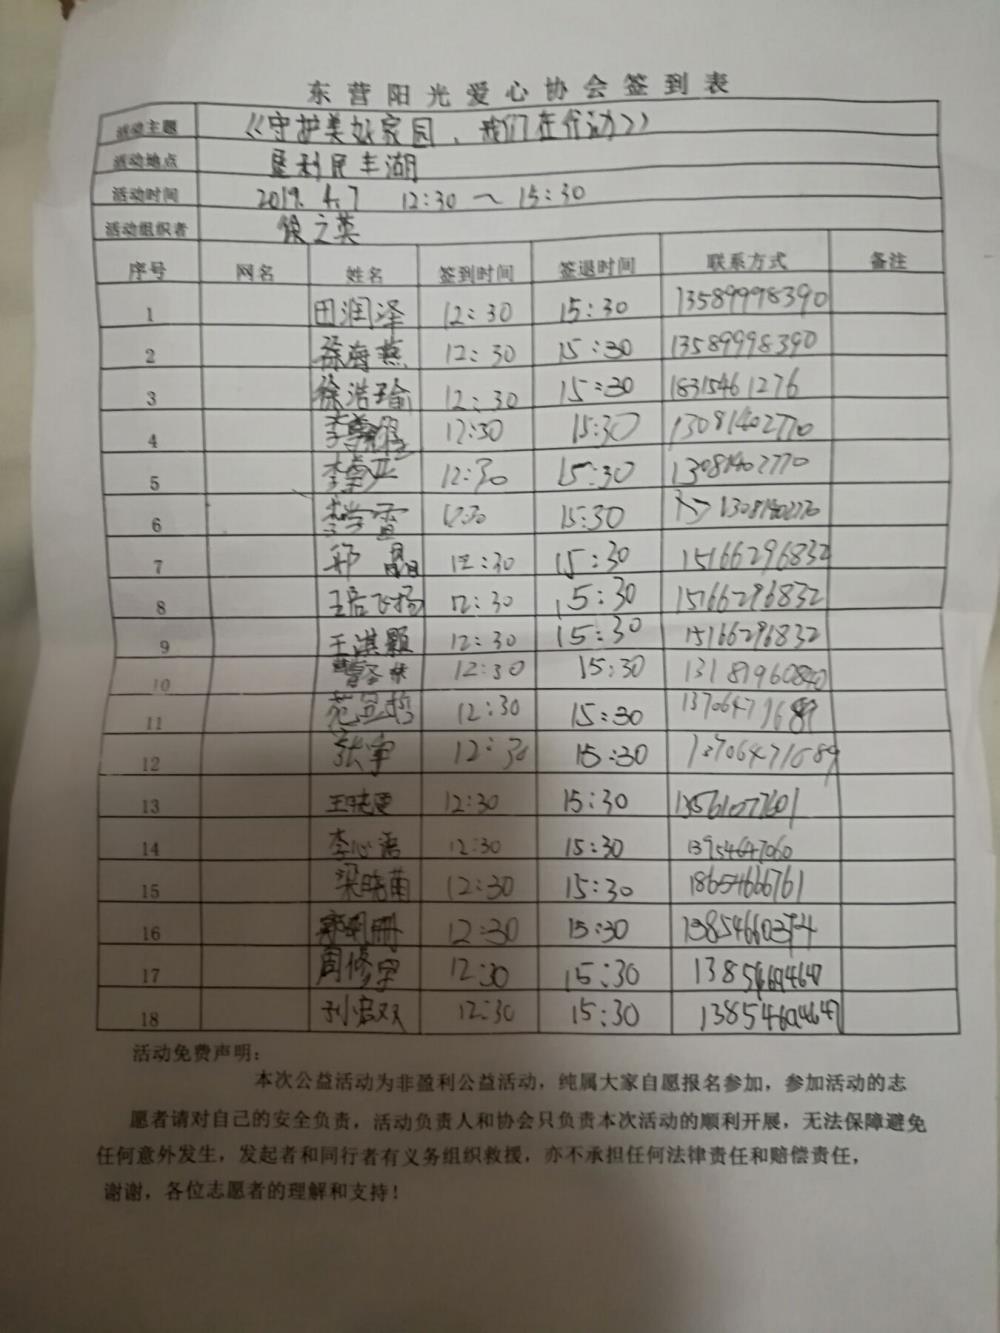 东营阳光爱心协会签到表
活动主题 《守护美好家园、我们在行动》
活动地点 垦利民丰湖
活动时间 2019.4.7 12:30～15:30
活动组织者 徐之英
序号 网名 姓名 签到时间 签退时间 联系方式 备注
1 田润泽 12:30 15:30 13589998390
2 徐海燕 12:30 15:30 13589998390
3 徐浩瑜 12:30 15:30 18315461276
4 12:30 15:30 13081402770
5 李卓亚 12:30 15:30 13081402770
6 12:30 15:30 13081402770
7 郑晶 12:30 15:30 15166296832
8 王岳飞扬 12:30 15:30 15166296832
9 王淇颢 12:30 15:30 15166296832
10 12:30 15:30 13181960840
11 范宜哲 12:30 15:30 13706471689
12 张宁 12:30 15:30 13706471689
13 王晓雯 12:30 15:30 13561077601
14 李心语 12:30 15:30 13954647060
15 梁晓菊 12:30 15:30 18654666761
16 12:30 15:30
17 周修宇 12:30 15:30
18 12:30 15:30 13854604647
活动免费声明：
本次公益活动为非盈利公益活动，纯属大家自愿报名参加，参加活动的志
愿者请对自己的安全负责，活动负责人和协会只负责本次活动的顺利开展，无法保障避免
任何意外发生，发起者和同行者有义务组织救援，亦不承担任何法律责任和赔偿责任，
谢谢，各位志愿者的理解和支持！